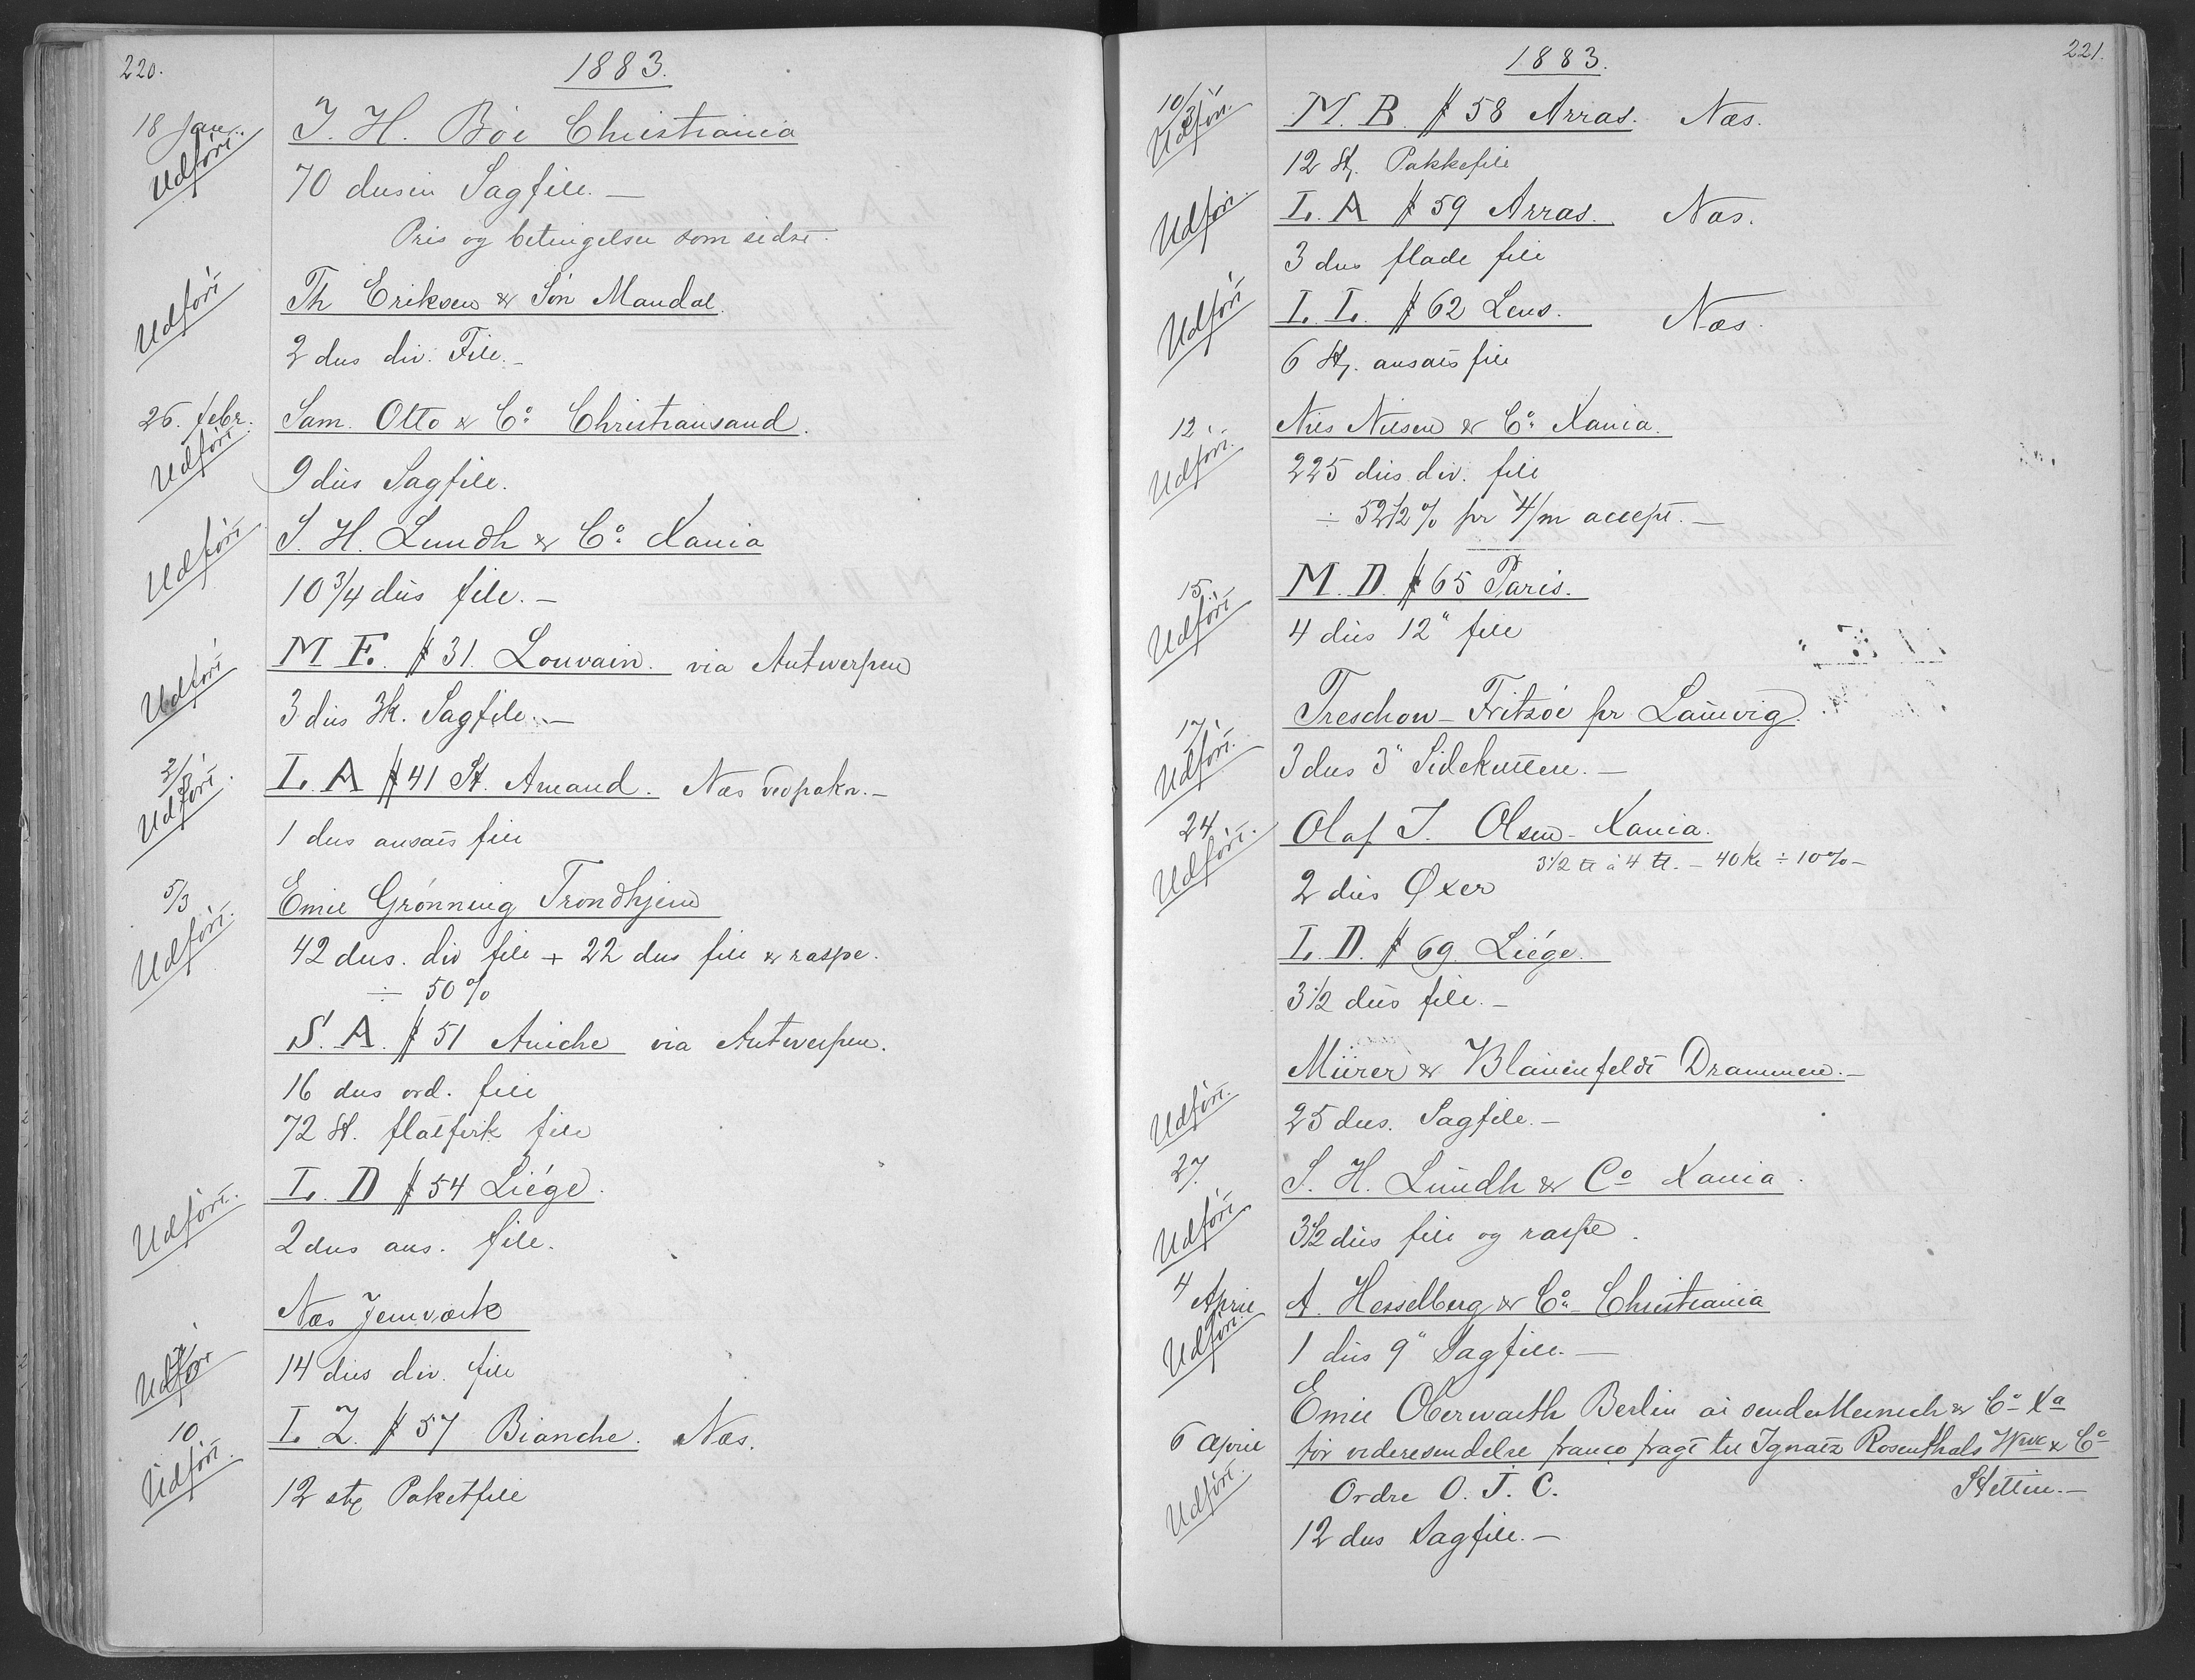 220.
1883.
18 Jan.
Udført
J. H. Böe Christiania
70 dusin Sagfile. —
Pris og betingelser som sidst.
Udført
Th Eriksen & Søn Mandal.
2 dus div. File. —
26. febr.
Udført
Sam. Otto & Co. Christiansand.
9 dus Sagfile.
Udført
S. H. Lundh & Co. Xania
10 3/4 dus file. —
Udført
M E. # 31. Louvain. via Antwerpen
3 dus 3k. Sagfile. —
2/3
Udført.
L. A # 41 St. Amand. Næs vedpakn. —
1 dus ansats file
5/3
Udført.
Emil Grønning Trondhjem
42 dus. div file + 22 dus file & raspe.
÷ 50 %
S. A. # 51 Aniche via Antwerpen.
16 dus ord. file
72 St. flatfirk file
Udført.
L. D # 54 Liége.
2 dus ans. file.
Næs Jernværk
Udført
14 dus div. file
10.
Udført.
L. Z. # 57 Bianche. Næs.
12 stk Paketfile
1883.
221.
10/3
Udført.
M. B. # 58 Arras. Næs.
12 St. Pakkefile
Udført.
L. A # 59 Arras. Næs.
3 dus flade file
Udført
L. L. # 62 Lens. Næs.
6 St. ansats file
12.
Udført.
Nils Nilsen & Co. Xania.
225 dus div. file
÷ 52 1/2 % pr 4/m accept. —
15.
Udført
M. D. # 65 Paris.
4 dus 12" file
17.
Udført.
Treschow - Fritzöe pr Laurvig.
3 dus 3" Sidekutter. —
24.
Udført.
Olaf T. Olsen - Xania.
3 1/2 ℔ à 4 ℔. — 40 Kr ÷ 10 % —
2 dus Øxer
L. D. # 69 Liége.
3 1/2 dus file. —
Mürer & Blauenfeldt Drammen. —
Udført.
25 dus. Sagfile. —
27.
S. H. Lundh & Co Xania.
Udført
3 1/2 dus file og raspe.
4 April
A. Hesselberg & Co. Christiania
Udført.
1 dus 9" Sagfile. —
Emil Oberwarth Berlin at sende Meinich & Co Xa
6 April
for videresendelse franco fragt til Ignatz Rosenthals Wwe & Co
Udført.
Ordre O. J. C. Stettin. —
12 dus Sagfile. —